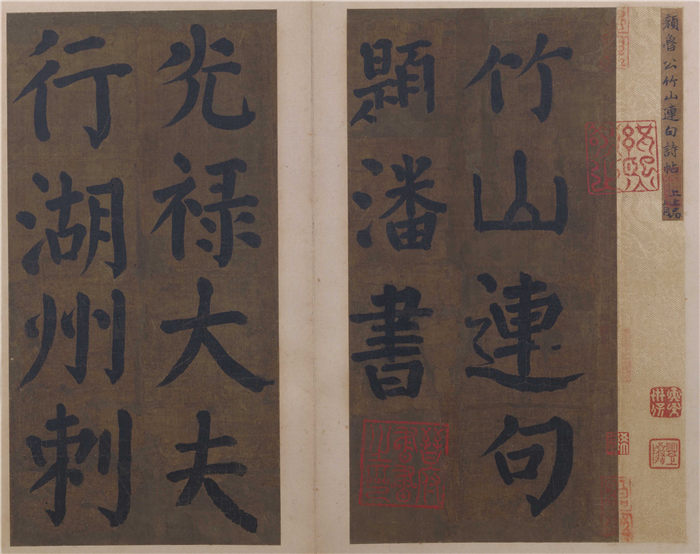 顏魯公竹山連句詩帖 上上品
竹山連句
題潘書
光祿大夫
行湖州刺